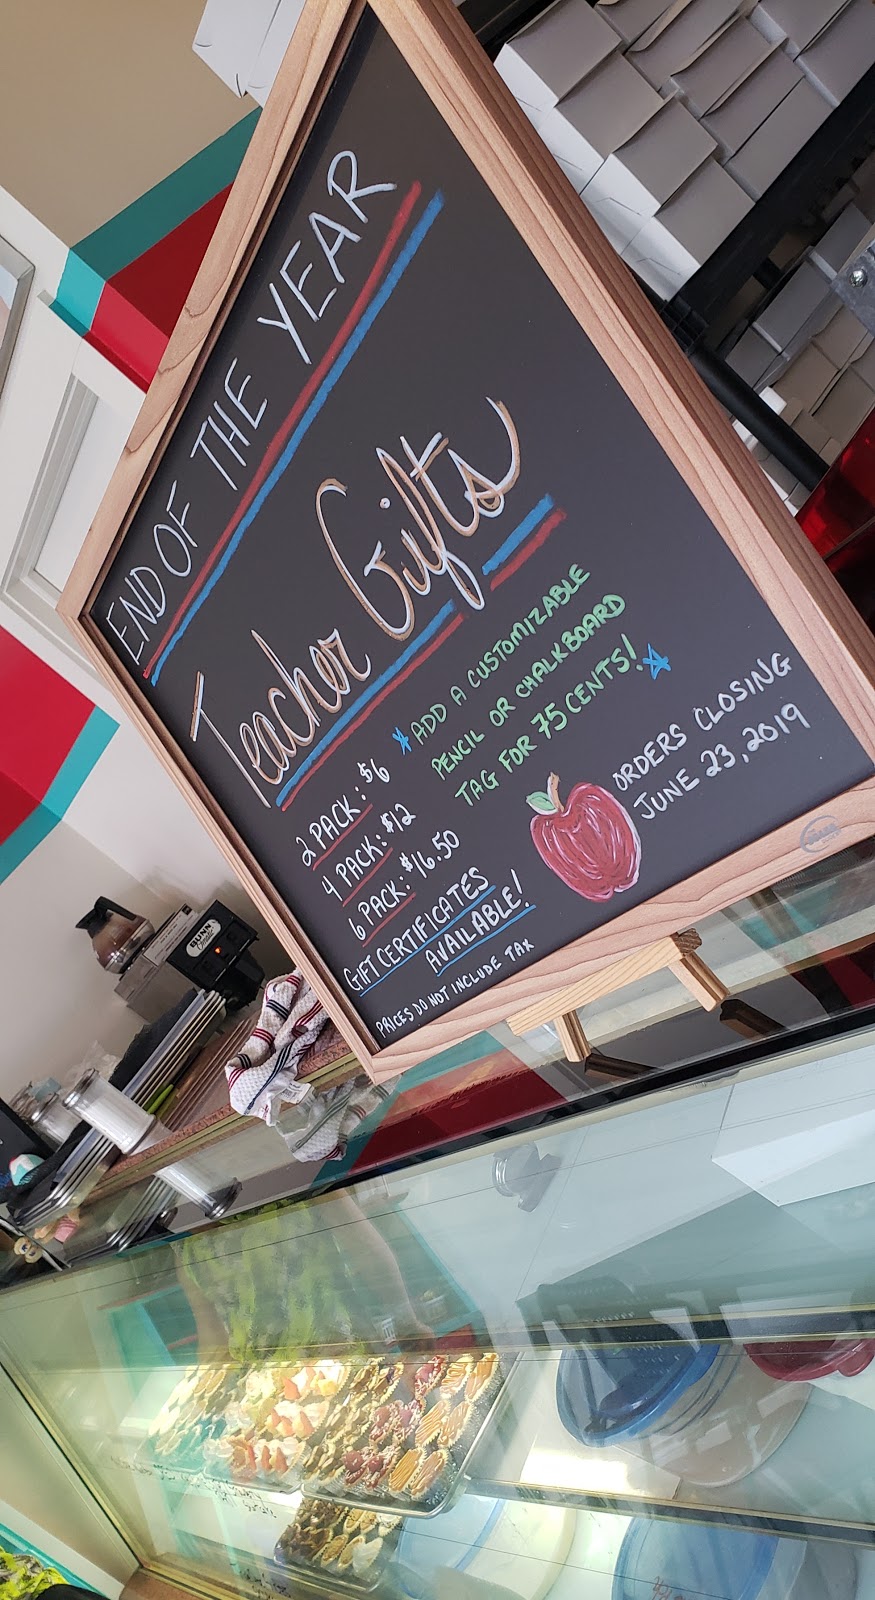 END OF THE YEAR
Teacher Gifts
2 PACK: $6
4 PACK: $12
6 PACK: $16.50
GIFT CERTIFICATES
AVAILABLE!
PRICES DO NOT INCLUDE TAX
ADD A CUSTOMIZABLE
PENCIL OR CHALKBOARD
TAG FOR 75 CENTS!
ORDERS CLOSING
JUNE 23, 2019
BUNN